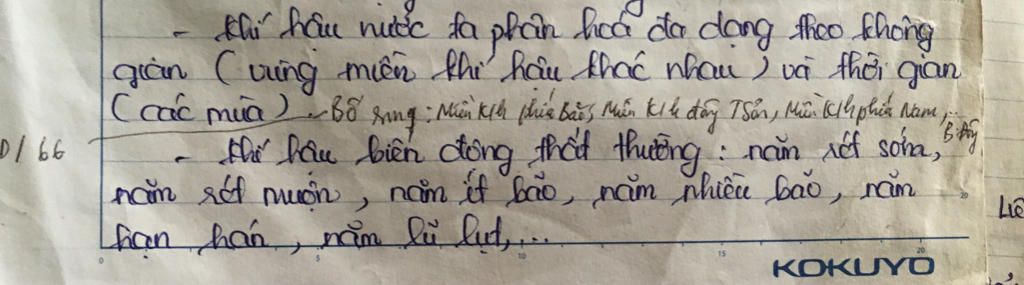 - Khí hậu nước ta phân hoá đa dạng theo không
gian (vùng miền khí hậu khác nhau) và thời gian
(các mùa). - Bổ sung: Miền KH phía Bắc, Miền KH đông TSơn, Miền KH phía Nam,...
B.Đông
D/66
- Khí hậu biến động thất thường: năm rét sớm,
năm rét muộn, năm ít bão, năm nhiều bão, năm
hạn hán, năm lũ lụt,...
Liê
0 5 10 15 20
KOKUYO